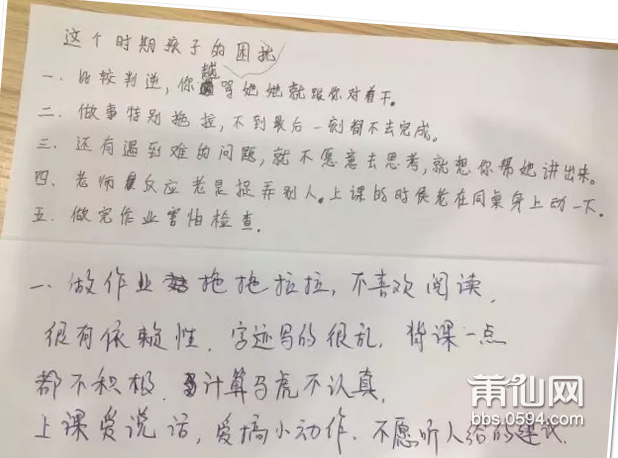 这个时期孩子的困扰
一.比较判逆,你越骂她她就跟你对着干。
二.做事特别拖拉,不到最后一刻都不去完成。
三.还有遇到难的问题,就不愿意去思考,就想你帮她讲出来。
四.老师反应老是捉弄别人。上课的时侯老在同桌身上动一下。
五.做完作业害怕检查.
一.做作业拖拖拉拉,不喜欢阅读,
很有依赖性.字迹写的很乱,背课一点
都不积极.计算马虎不认真,
上课爱说话,爱搞小动作.不愿听人给的建议.
莆仙网
bbs.0594.com